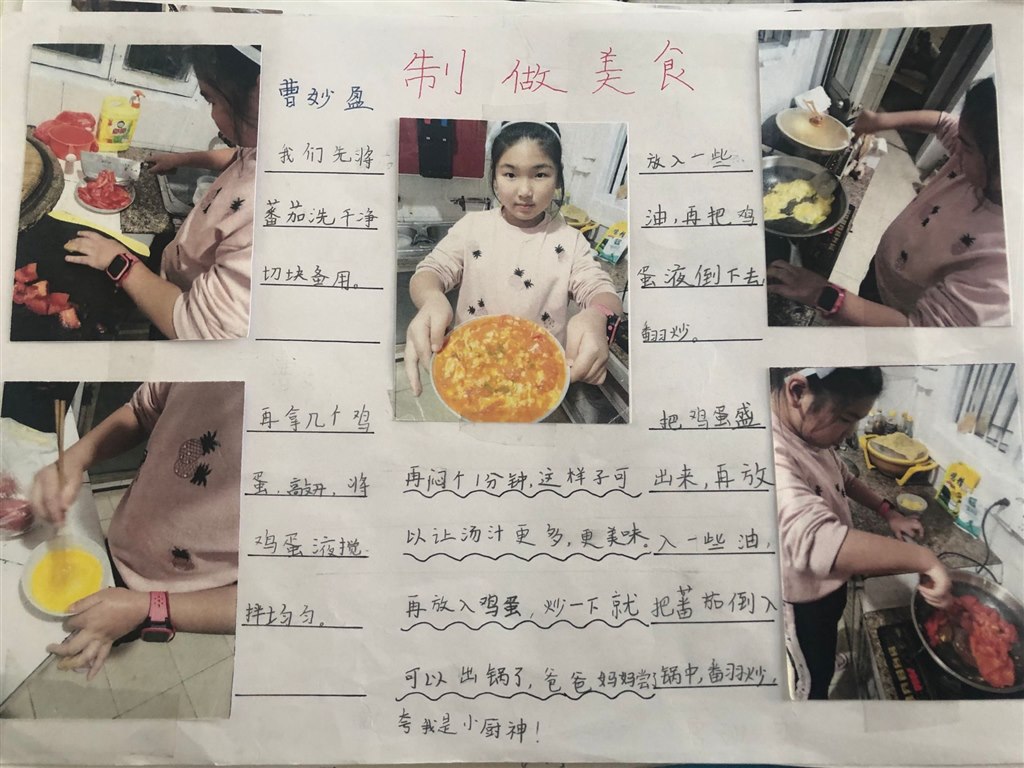 制做美食
曹妙盈
我们先将
蕃茄洗干净
切块备用。
再拿几个鸡
蛋,敲开,将
鸡蛋液搅
拌均匀。
放入一些
油,再把鸡
蛋液倒下去
翻炒。
把鸡蛋盛
出来,再放
入一些油,
把蕃茄倒入
锅中,翻炒,
再闷个1分钟,这样子可
以让汤汁更多,更美味。
再放入鸡蛋,炒一下就
可以出锅了,爸爸妈妈尝了
夸我是小厨神!